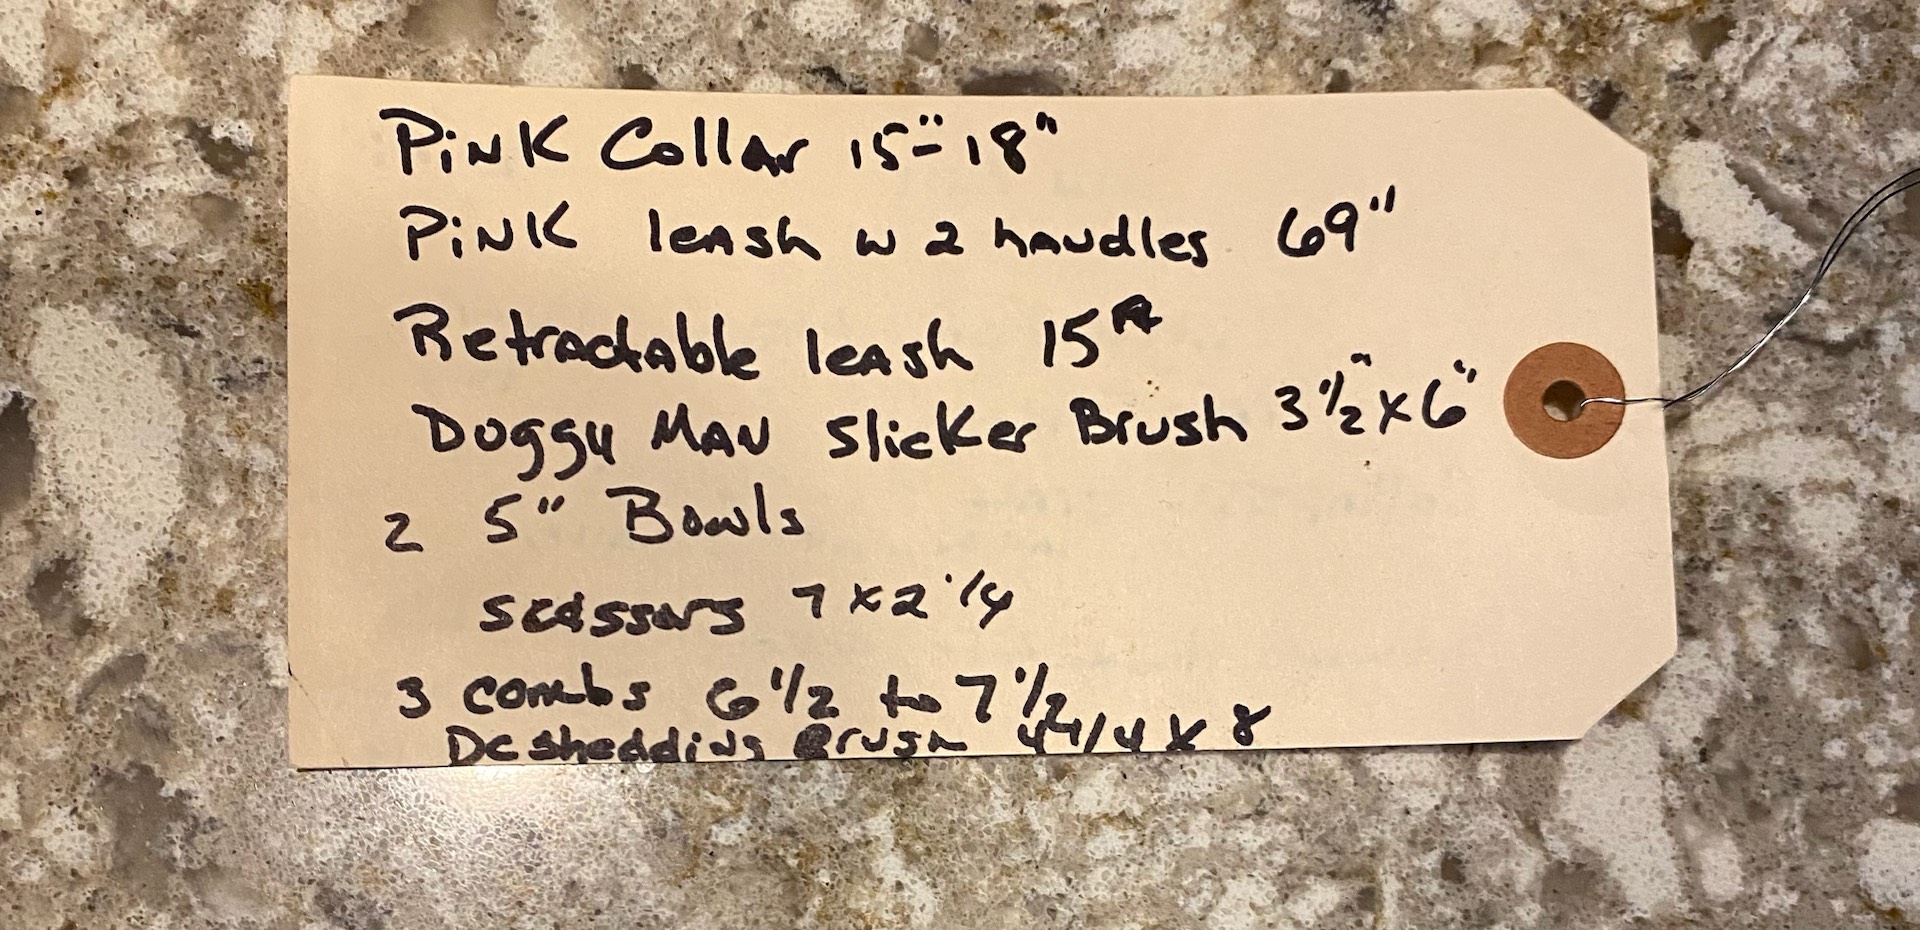 PINK Collar 15"-18"
PINK leash w 2 handles 69"
Retractable leash 15 ft
Doggy MAN Slicker Brush 3 1/2" x 6"
2 5" Bowls
scissors 7 x 2 1/4
3 combs 6 1/2 to 7 1/2
Deshedding Brush 4 1/4 x 8